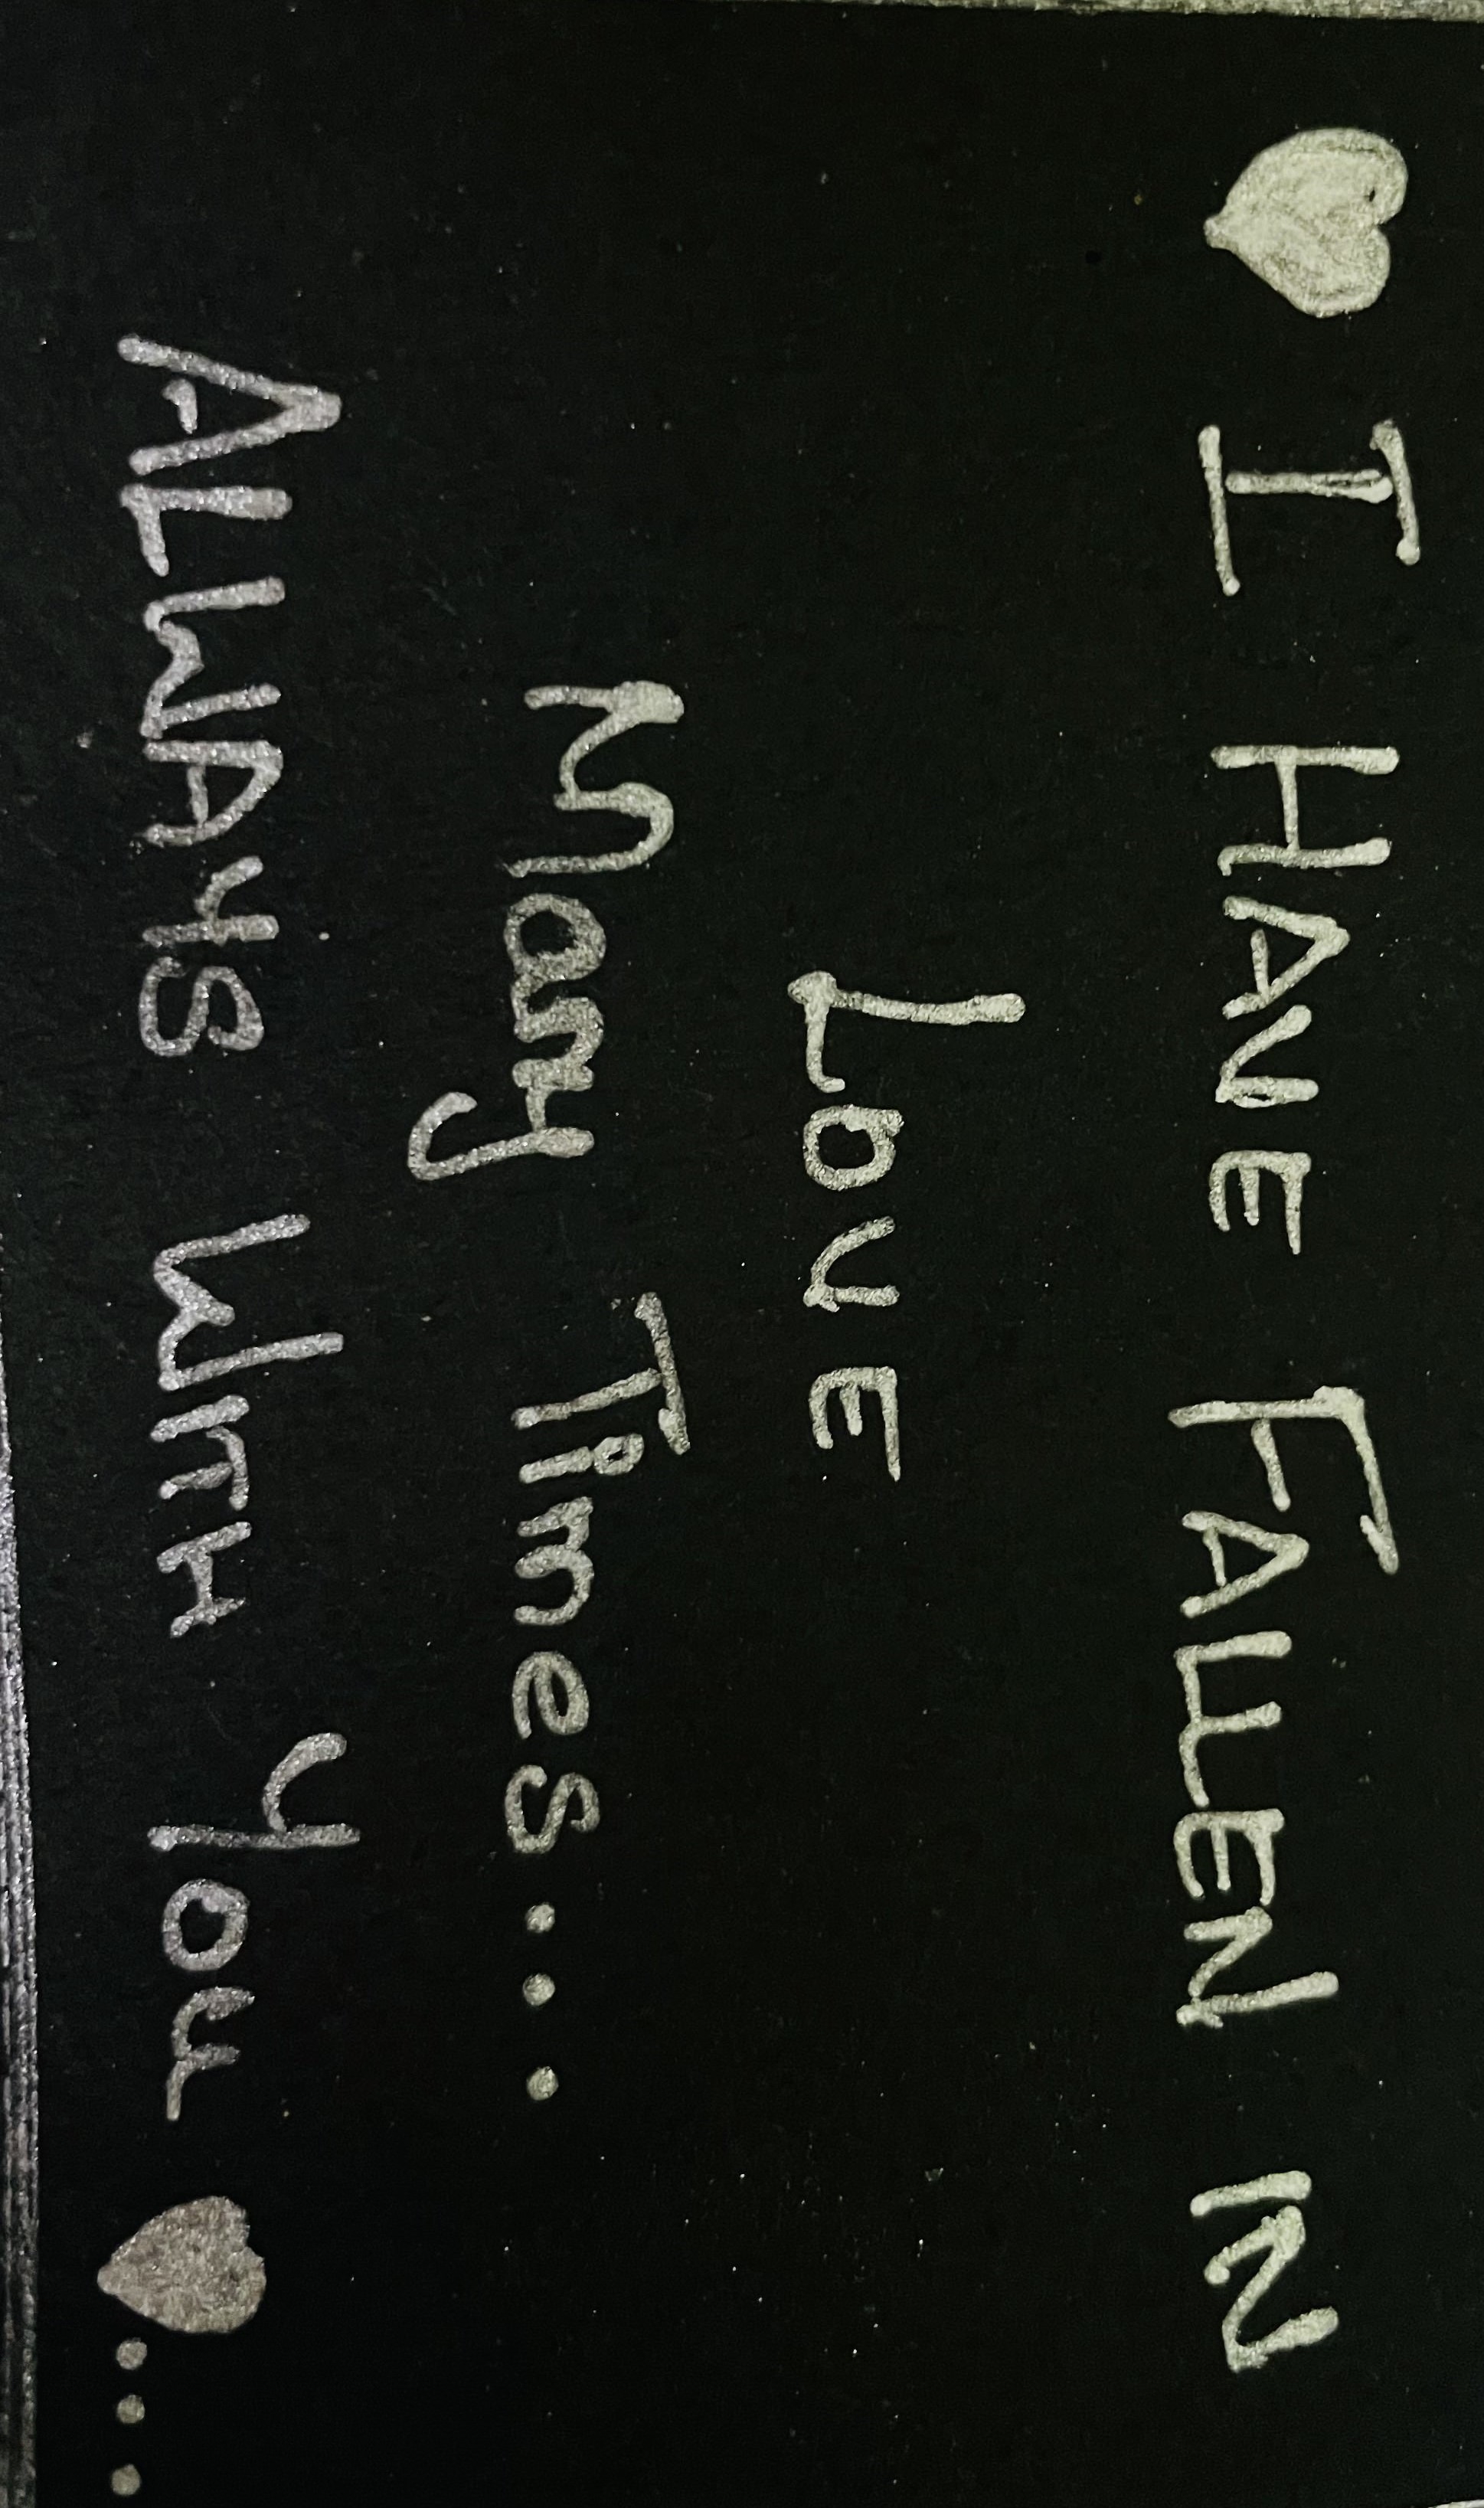 ♥ I HAVE FALLEN IN
LOVE
Many Times...
ALWAYS WITH You ♥...